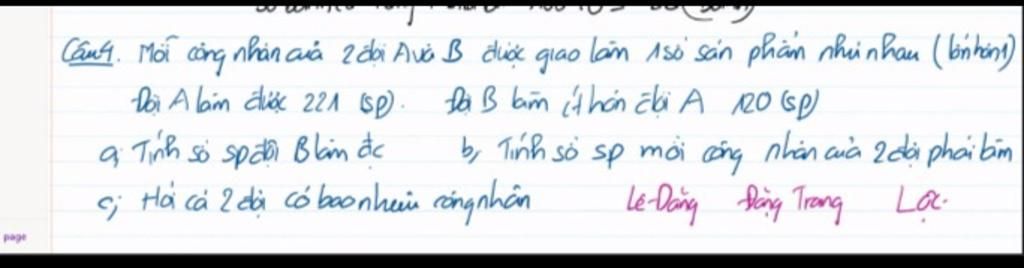 Câu 4. Mỗi công nhân của 2 đội A và B được giao làm 1 số sản phẩm như nhau (lớn hơn 1)
Đội A làm được 221 (sp). Đội B làm ít hơn đội A 120 (sp)
a, Tính số sp đội B làm đc b, Tính số sp mỗi công nhân của 2 đội phải làm
c, Hỏi cả 2 đội có bao nhiêu công nhân Lê-Đăng Đặng Trang Lộc.
page